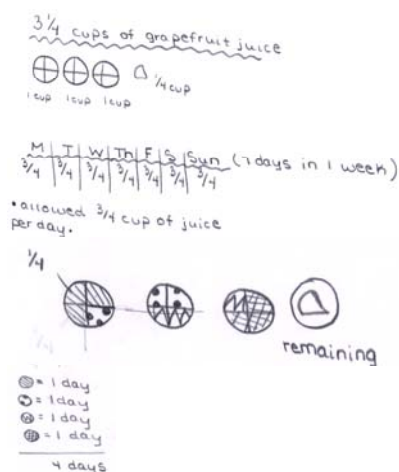 3 1/4 cups of grapefruit juice
1/4 cup
1 cup 1 cup 1 cup
M T W Th F S Sun (7 days in 1 week)
3/4 3/4 3/4 3/4 3/4 3/4 3/4
• allowed 3/4 cup of juice
per day.
1/4
remaining
= 1 day
= 1 day
= 1 day
= 1 day
4 days